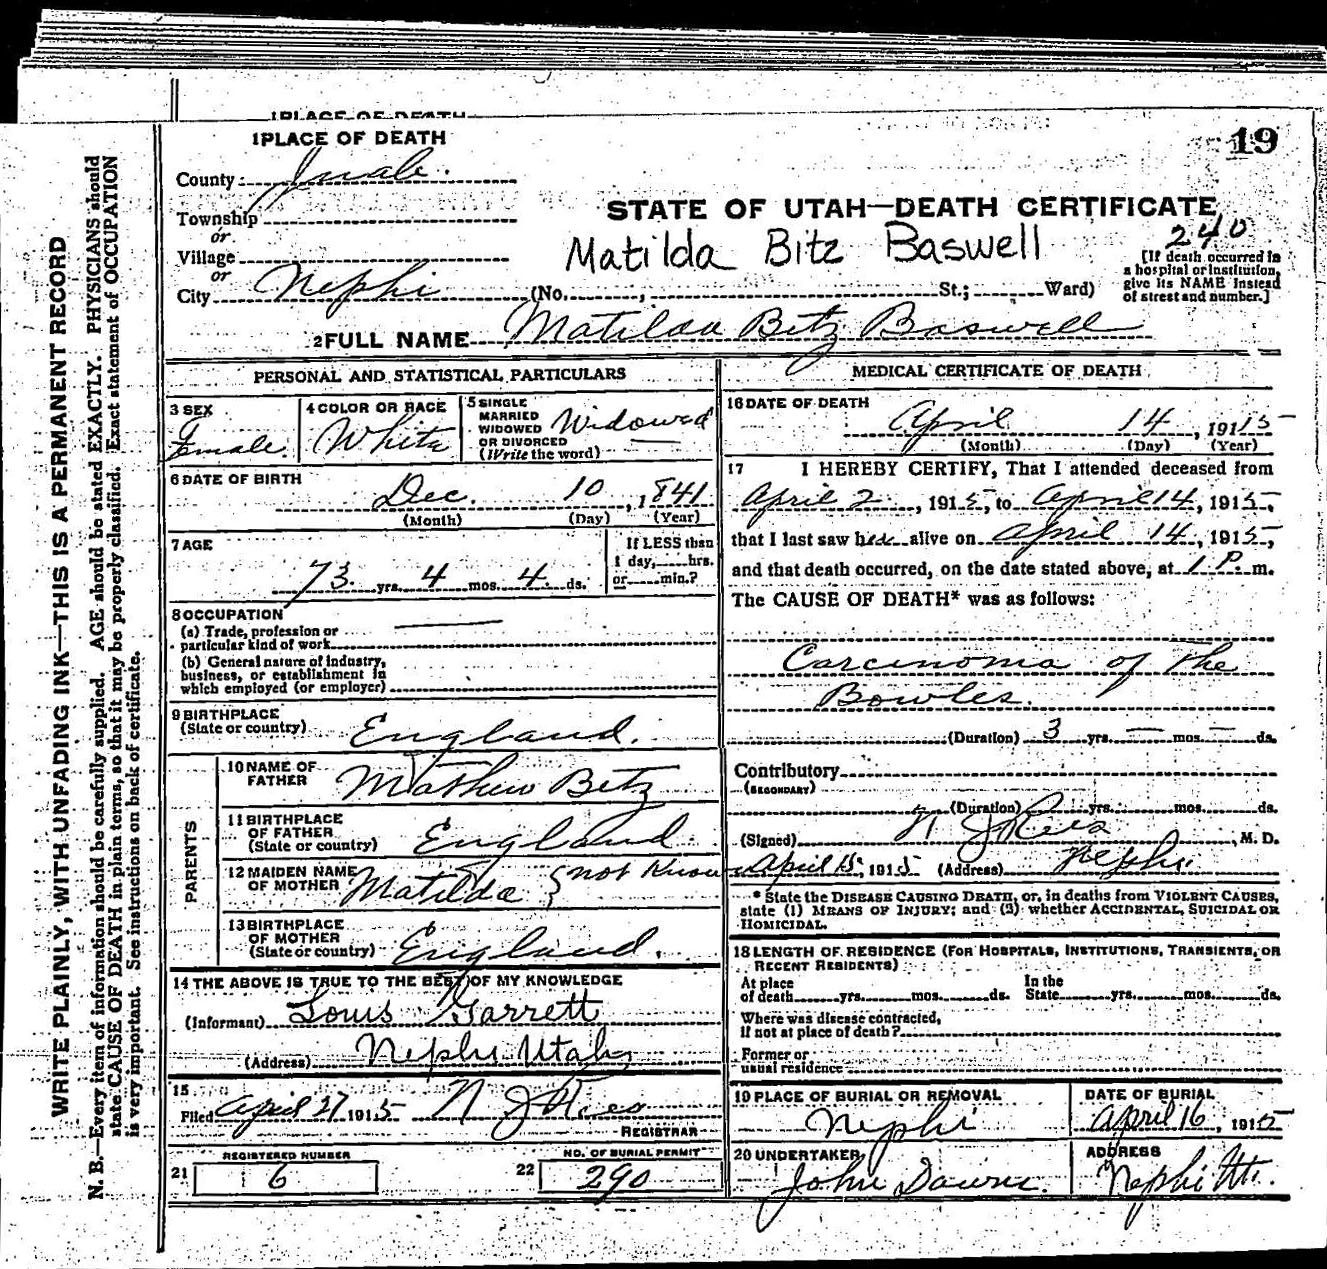 1 PLACE OF DEATH
19
1 PLACE OF DEATH
County: Juab.
Township
or
Village
or
City Nephi (No. , St.; Ward)
STATE OF UTAH—DEATH CERTIFICATE
240
Matilda Bitz Baswell
[If death occurred in
a hospital or institution,
give its NAME instead
of street and number.]
2 FULL NAME Matilda Betz Baswell
PERSONAL AND STATISTICAL PARTICULARS
3 SEX
Female.
4 COLOR OR RACE
White
5 SINGLE
MARRIED
WIDOWED
OR DIVORCED
(Write the word)
Widowed
6 DATE OF BIRTH
Dec. 10, 1841
(Month) (Day) (Year)
7 AGE
73 yrs. 4 mos. 4 ds.
If LESS than
1 day, hrs.
or min.?
8 OCCUPATION
(a) Trade, profession or
particular kind of work
(b) General nature of industry,
business, or establishment in
which employed (or employer)
9 BIRTHPLACE
(State or country)
England.
PARENTS
10 NAME OF
FATHER
Mathew Betz
11 BIRTHPLACE
OF FATHER
(State or country)
England
12 MAIDEN NAME
OF MOTHER
Matilda { not Know
13 BIRTHPLACE
OF MOTHER
(State or country)
England.
14 THE ABOVE IS TRUE TO THE BEST OF MY KNOWLEDGE
(Informant) Louis Garrett
(Address) Nephi Utah
15
Filed April 27 1915
REGISTRAR
21
REGISTERED NUMBER
6
22
NO. OF BURIAL PERMIT
290
MEDICAL CERTIFICATE OF DEATH
16 DATE OF DEATH
April 14, 1915
(Month) (Day) (Year)
17 I HEREBY CERTIFY, That I attended deceased from
April 2, 1915, to April 14, 1915,
that I last saw her alive on April 14, 1915,
and that death occurred, on the date stated above, at 1 P. m.
The CAUSE OF DEATH* was as follows:
Carcinoma of the
Bowles.
(Duration) 3 yrs. — mos. — ds.
Contributory
(SECONDARY)
(Duration) yrs. mos. ds.
(Signed) , M. D.
April 15, 1915 (Address) Nephi.
* State the DISEASE CAUSING DEATH, or, in deaths from VIOLENT CAUSES,
state (1) MEANS OF INJURY; and (2) whether ACCIDENTAL, SUICIDAL OR
HOMICIDAL.
18 LENGTH OF RESIDENCE (FOR HOSPITALS, INSTITUTIONS, TRANSIENTS, OR
RECENT RESIDENTS)
At place
of death yrs. mos. ds.
In the
State yrs. mos. ds.
Where was disease contracted,
if not at place of death?
Former or
usual residence
19 PLACE OF BURIAL OR REMOVAL
Nephi
DATE OF BURIAL
April 16, 1915
20 UNDERTAKER
John
ADDRESS
Nephi Ut.
WRITE PLAINLY, WITH UNFADING INK—THIS IS A PERMANENT RECORD
N. B.—Every item of information should be carefully supplied. AGE should be stated EXACTLY. PHYSICIANS should
state CAUSE OF DEATH in plain terms, so that it may be properly classified. Exact statement of OCCUPATION
is very important. See instructions on back of certificate.